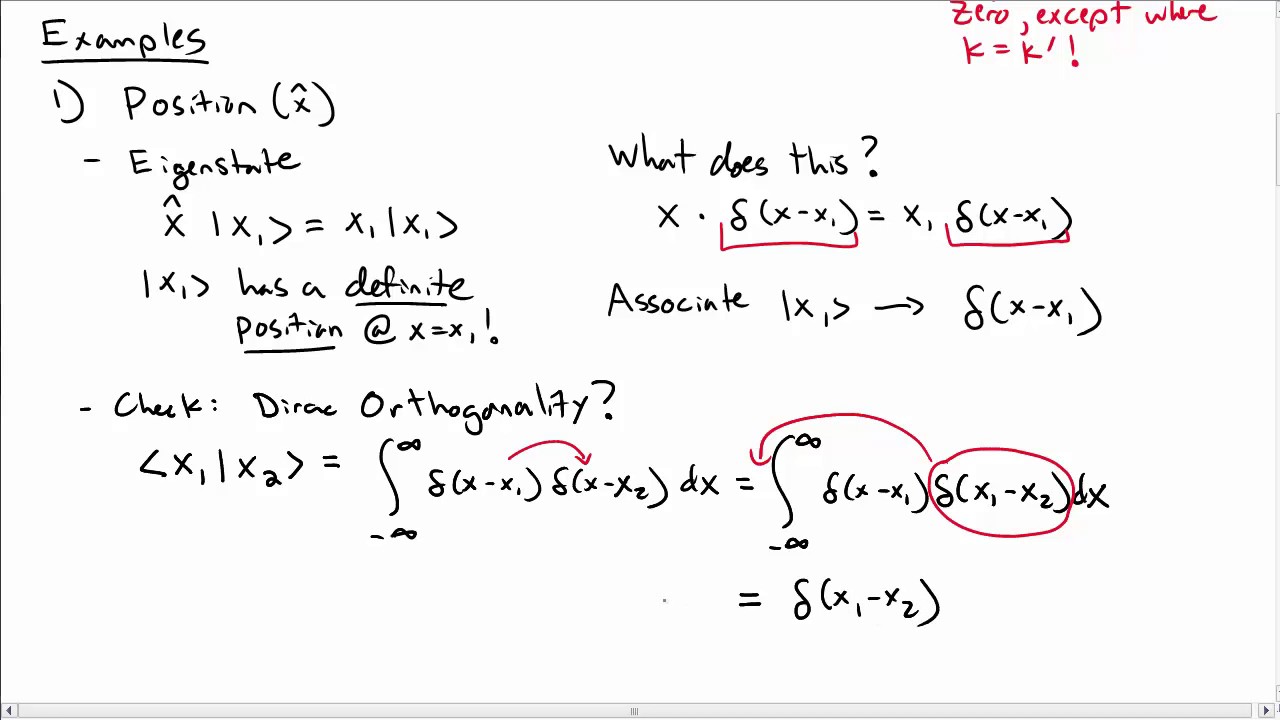 zero, except where
k = k'!
Examples
1) Position (x̂)
- Eigenstate
x̂ |x₁> = x₁|x₁>
|x₁> has a definite
position @ x=x₁!
What does this?
x · δ(x-x₁) = x₁ δ(x-x₁)
Associate |x₁> → δ(x-x₁)
- Check: Dirac Orthogonality?
<x₁|x₂> = ∫_{-∞}^{∞} δ(x-x₁) δ(x-x₂) dx = ∫_{-∞}^{∞} δ(x-x₁) δ(x₁-x₂) dx
= δ(x₁-x₂)